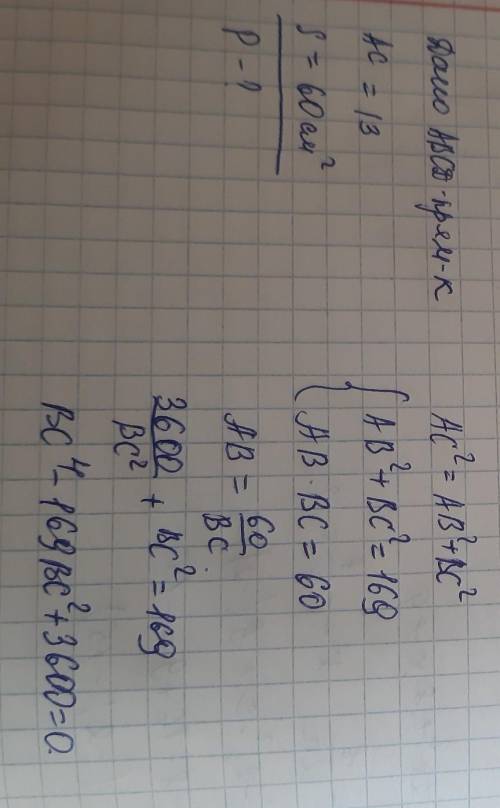 Дано ABCD-прям-к
AC = 13
S = 60 см²
P - ?
AC² = AB² + BC²
{ AB² + BC² = 169
AB · BC = 60
AB = 60/BC
3600/BC² + BC² = 169
BC⁴ - 169BC² + 3600 = 0